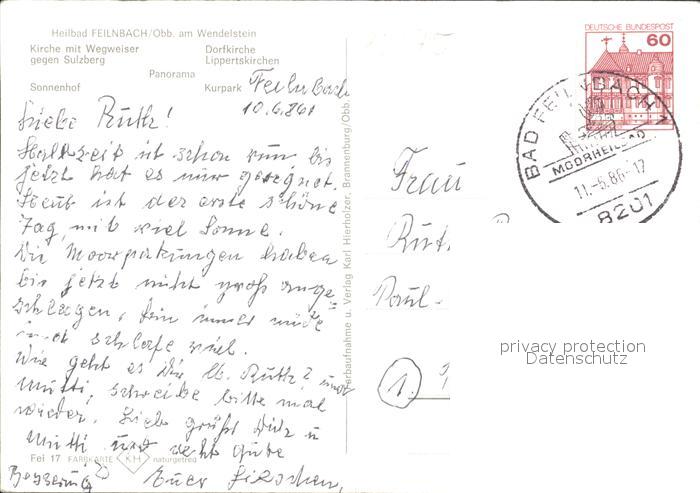 Heilbad FEILNBACH/Obb. am Wendelstein
Kirche mit Wegweiser
gegen Sulzberg
Dorfkirche
Lippertskirchen
Panorama
Sonnenhof
Kurpark
Feilnbach
10.6.86
Liebe Ruth!
Halbzeit ist schon rum, bis
jetzt hat es nur geregnet.
Heute ist der erste schöne
Tag, mit viel Sonne.
Die Moorpackungen haben
bis jetzt nicht groß ange-
schlagen, bin immer müde
und schlafe viel.
Wie geht es Dir lb. Ruth? und
Mutti, schreibe bitte mal
wieder. Liebe Grüße Dir u
Mutti und recht gute
Besserung
Euer
Fei 17 FARBKARTE KH naturgetreu
Farbaufnahme u. Verlag Karl Hierholzer, Brannenburg/Obb.
DEUTSCHE BUNDESPOST
60
BAD FEILNBACH 1
MOORHEILBAD
11.-6.86-17
8201
Frau
Rut
Paul-
1
privacy protection
Datenschutz